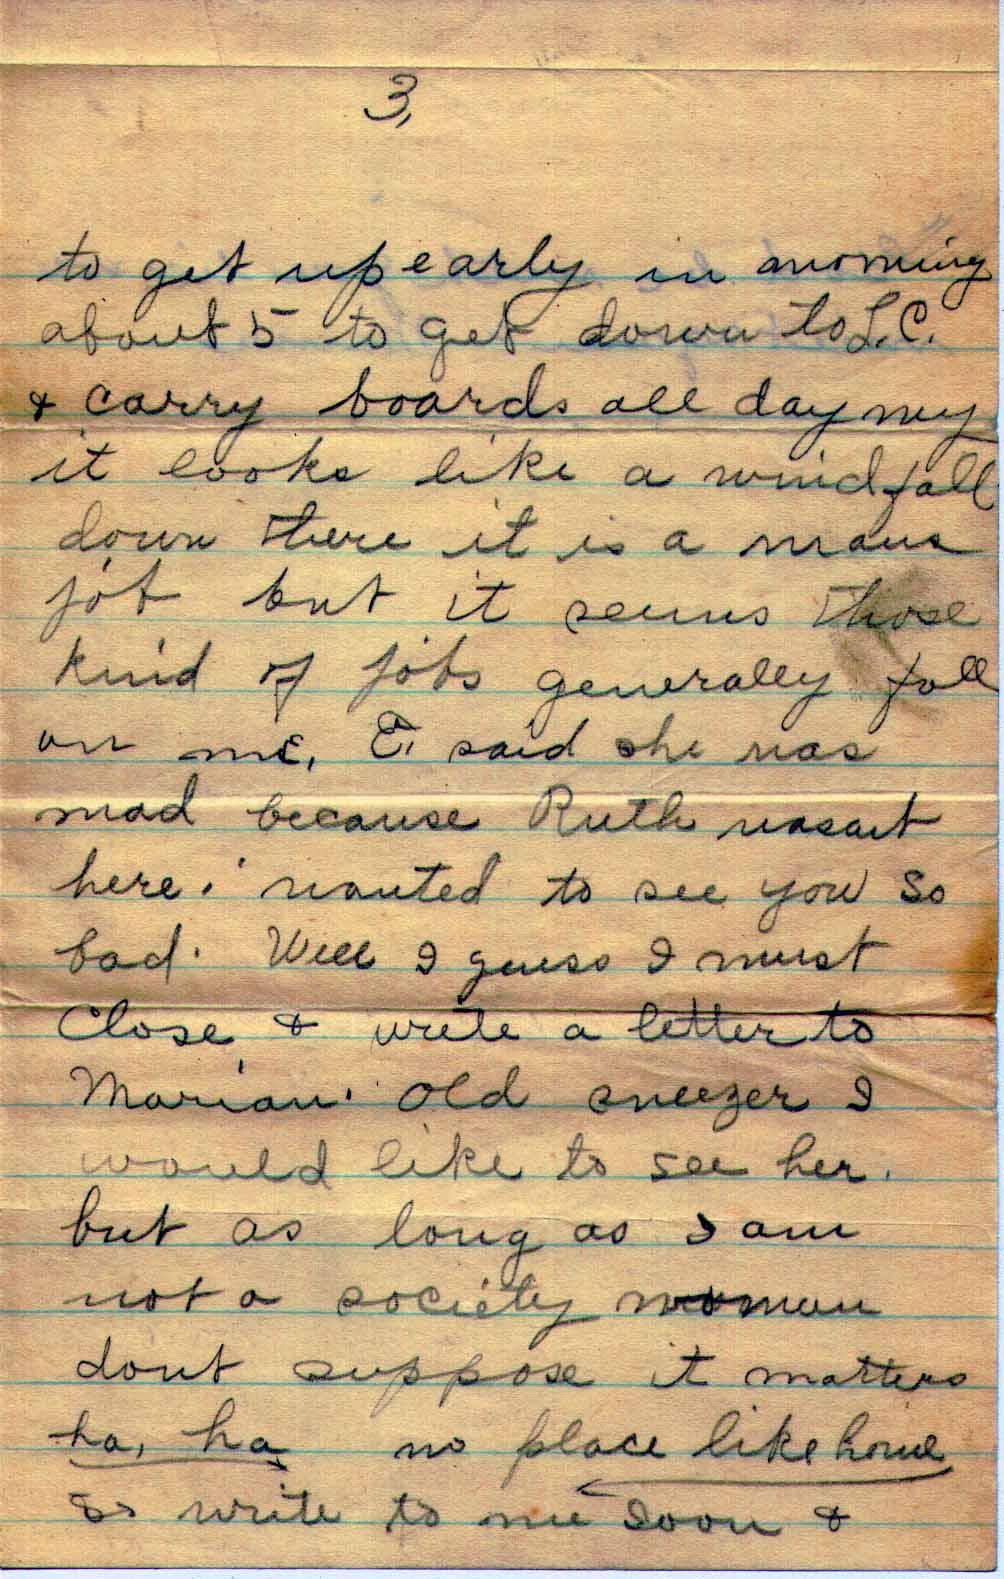 3,
to get up early in morning
about 5 to get down to L.C.
& carry boards all day my
it looks like a wind fall
down there it is a mans
job but it seems those
kind of jobs generally fall
on me, E. said she was
mad because Ruth wasant
here. wanted to see you so
bad. Well I guess I must
close & write a letter to
Marian. old sneezer I
would like to see her.
but as long as I am
not a society woman
dont suppose it matters
ha, ha no place like home
so write to me soon &